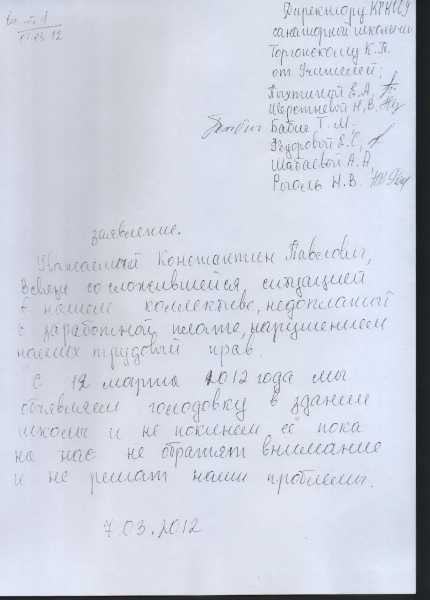 вх. № 1
07.03.12
Директору КГКСУ
санаторной школы
Торгонскому К.П.
от Учителей:
Пыхтиной Е.А.
Шерстневой Н.В.
Бабие Т.М.
Федоровой Е.С.
Шабаевой А.А.
Роголь Н.В.
заявление.
Уважаемый Константин Павлович,
В связи со сложившейся, ситуацией
в нашем коллективе, недоплатой
с заработной плате, нарушением
наших трудовый прав.
С 12 марта 2012 года мы
объявляем голодовку в здании
школы и не покинем её пока
на нас не обратят внимание
и не решат наши проблемы.
7.03.2012